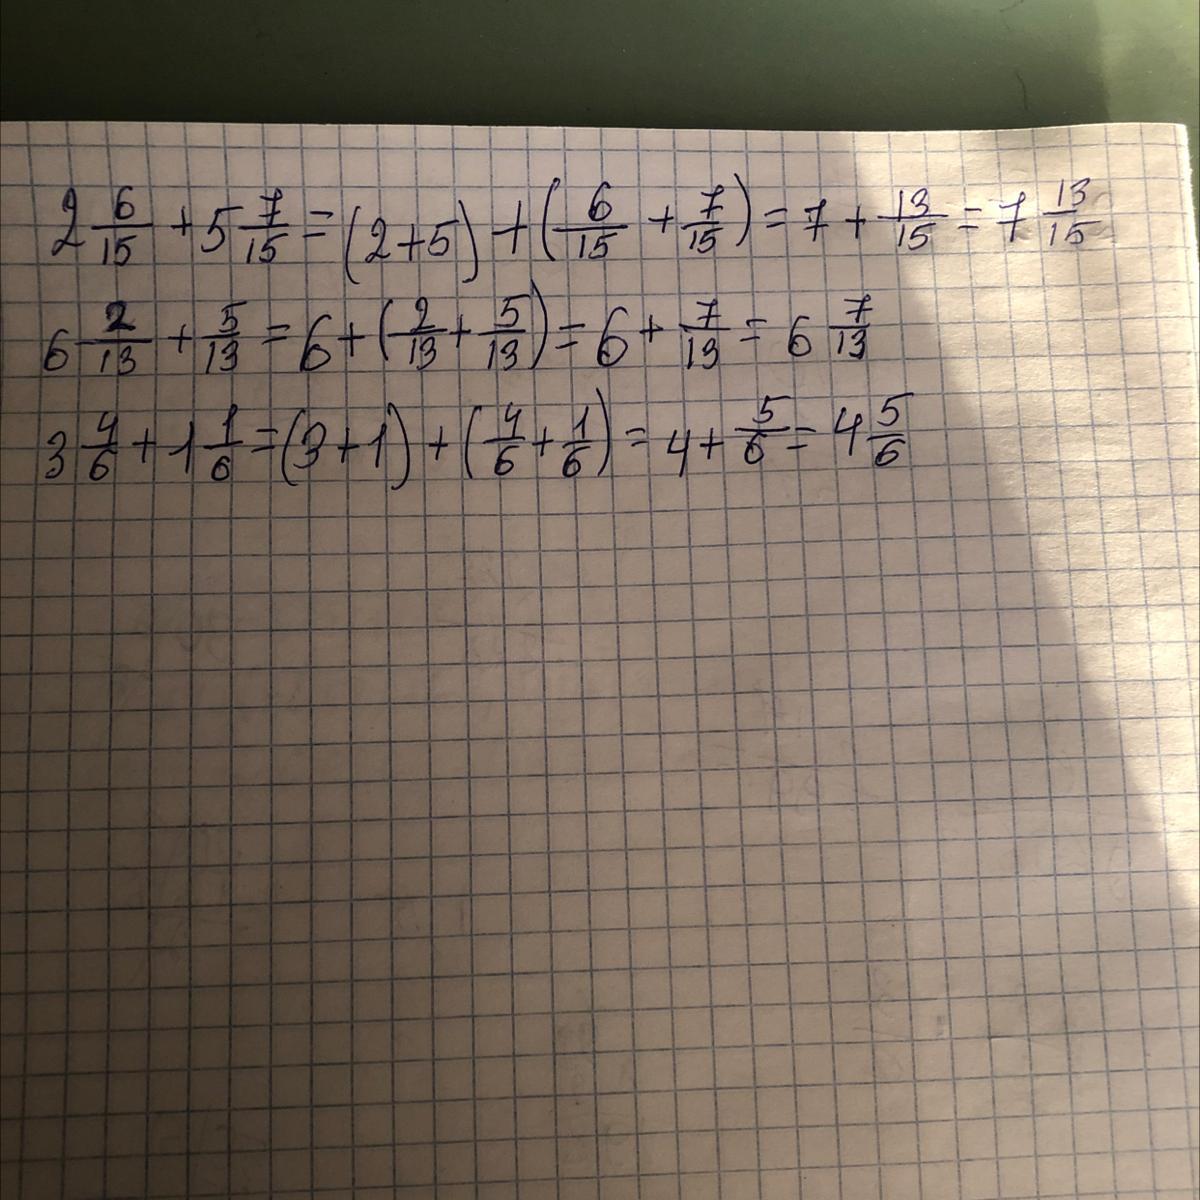 2 6/15 + 5 7/15 = (2+5) + (6/15 + 7/15) = 7 + 13/15 = 7 13/15
6 2/13 + 5/13 = 6 + (2/13 + 5/13) = 6 + 7/13 = 6 7/13
3 4/6 + 1 1/6 = (3+1) + (4/6 + 1/6) = 4 + 5/6 = 4 5/6